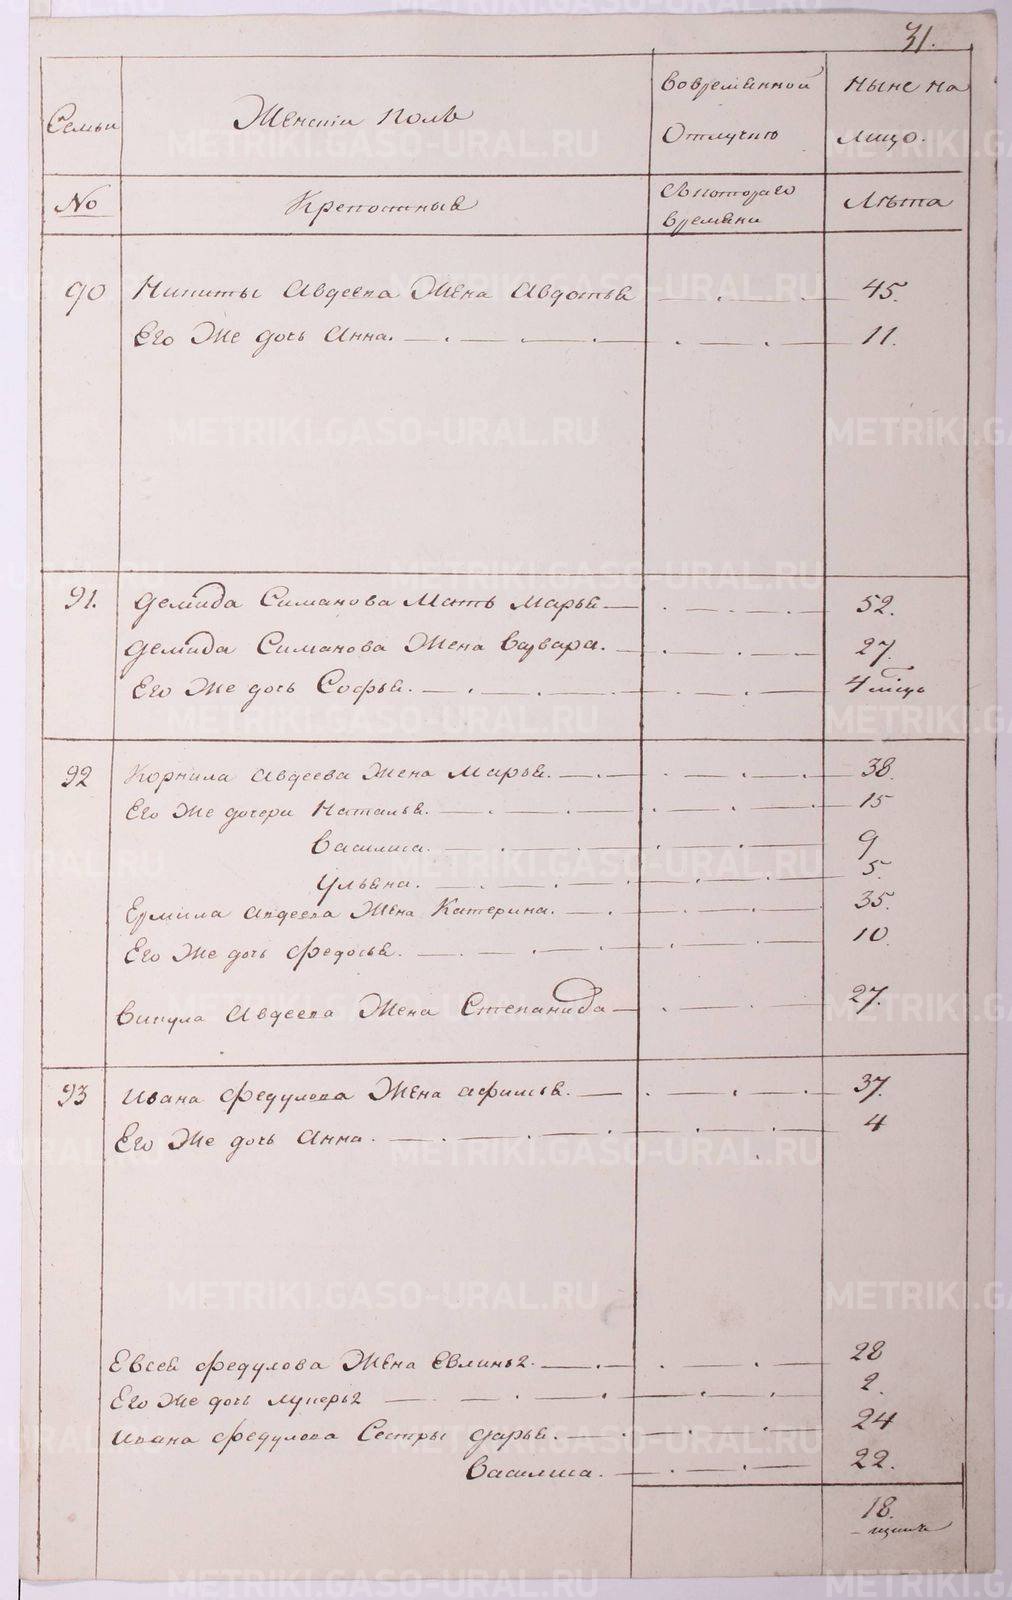 31.
Семьи
Женскiй полъ
Вовременной
Отлучкѣ
Ныне на
лицо.
№
Крепостныя
Съкотораго
времяни
Лѣта
90 Никиты Авдеева Жена Авдотья 45.
Его Же дочь Анна. 11.
91. Демида Симанова Мать Марья 52.
Демида Симанова Жена Варвара. 27.
Его Же дочь Софья. 4 мѣсц
92 Корнила Авдеева Жена Марья. 38.
Его Же дочери Наталья. 15
Василиса. 9
Ульяна. 5.
Ермила Авдеева Жена Катерина. 35.
Его Же дочь Федосья. 10
Викула Авдеева Жена Степанида 27.
93 Ивана Федулова Жена Афимья. 37.
Его Же дочь Анна. 4
Евсея Федулова Жена Евлинья. 28
Его же дочь Лукерья 2.
Ивана Федулова Сестры Дарья. 24
Василиса. 22.
18.
METRIKI.GASO-URAL.RU